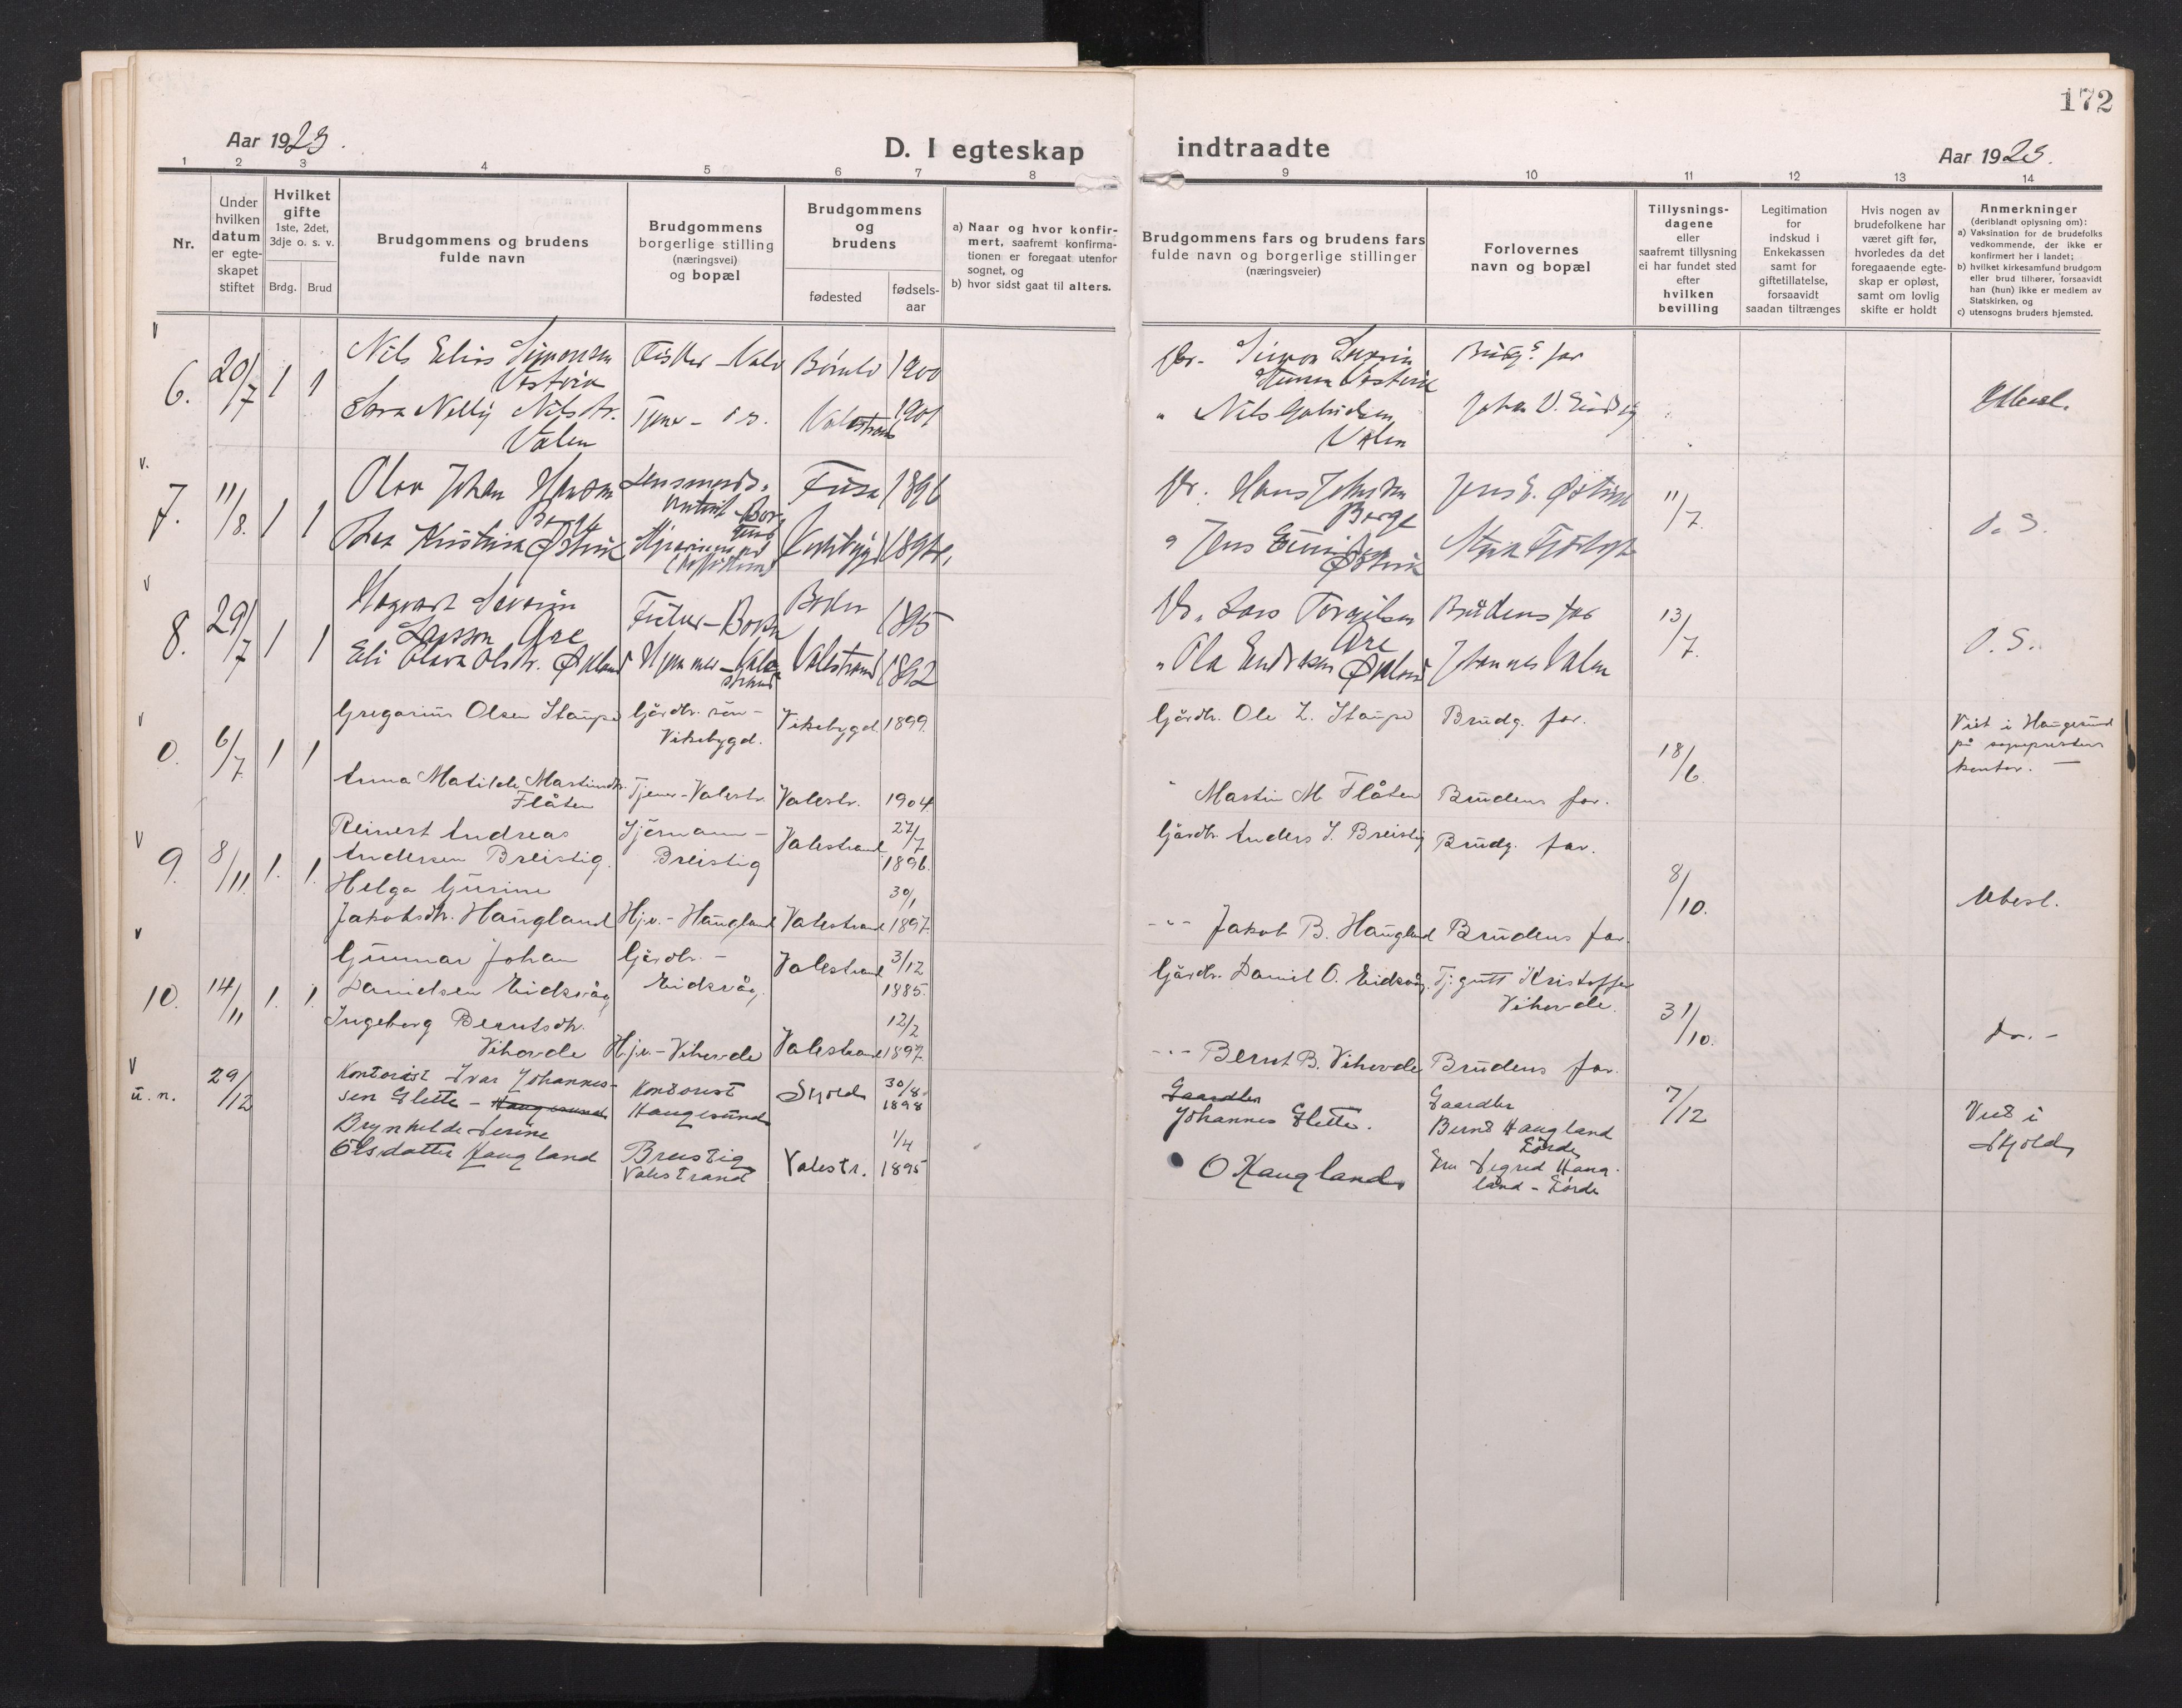 172
Aar 1923.
D. I egteskap indtraadte
Aar 1923.
1 2 3 4 5 6 7 8 9 10 11 12 13 14
Nr.
Under hvilken datum er egte-skapet stiftet
Hvilket gifte
1ste, 2det, 3dje o. s. v.
Brdg. Brud
Brudgommens og brudens
fulde navn
Brudgommens
borgerlige stilling
(næringsvei)
og bopæl
Brudgommens
og
brudens
fødested
fødsels-
aar
a) Naar og hvor konfir-
mert, saafremt konfirma-
tionen er foregaat utenfor
sognet, og
b) hvor sidst gaat til alters.
Brudgommens fars og brudens fars
fulde navn og borgerlige stillinger
(næringsveier)
Forlovernes
navn og bopæl
Tillysnings-
dagene
eller
saafremt tillysning
ei har fundet sted
efter
hvilken
bevilling
Legitimation
for
indskud i
Enkekassen
samt for
giftetillatelse,
forsaavidt
saadan tiltrænges
Hvis nogen av
brudefolkene har
været gift før,
hvorledes da det
foregaaende egte-
skap er opløst,
samt om lovlig
skifte er holdt
Anmerkninger
(deriblandt oplysning om):
a) Vaksination for de brudefolks
vedkommende, der ikke er
konfirmert her i landet;
b) hvilket kirkesamfund brudgom
eller brud tilhører, forsaavidt
han (hun) ikke er medlem av
Statskirken, og
c) utensogns bruders hjemsted.
v
6. 20/7 1 1
Nils Elias Simonsen
Vestvik
Fisker - Bømlo 1900
Simon
Brudg.s far
Sara Nelly Nilsdtr.
Valen
Tjener - Valestrand 1901
" Nils
Valen
Johan
v.
7. 11/8. 1 1
Olav Johan Hansen
Berge
Fusa 1896
Hans Johnsen
Berge
Jens E. Østvik
11/7.
D. S.
Kristina Østvik
" Jens
Østvik
v
8. 29/7 1 1
Severin
Larsson Are
1895
Lars Torgilsen
Are
Brudens far
13/7.
D. S.
Eli Olava Olsdtr. Økland
Valestrand 1892
" Ola Endresen Økland
Johannes Valen
v
0. 6/7 1 1
Gregarius Olsen Staupe
Gårdbr. søn -
Vikebygd.
Vikebygd 1899.
Gårdbr. Ole L. Staupe
Brudg. far.
18/6.
Viet i Haugesund
på sogneprestens
kontor. —
Anna Matilde Martinsdtr.
Flåten
Tjener - Valestr.
Valestr. 1904.
" Martin M. Flåten
Brudens far.
v
9. 8/11. 1. 1.
Reinert Andreas
Andersen Breistig.
Sjømann -
Breistig
Valestrand 27/7 1896.
Gårdbr. Anders J. Breistig
Brudg. far.
8/10.
Ubesl.
Helga Gurine
Jakobsdtr. Haugland
Hjv. - Haugland
Valestrand 30/1 1897.
-"- Jakob B. Haugland
Brudens far.
v
10. 14/11 1. 1.
Gunnar Johan
Danielsen Eidsvåg
Gårdbr. -
Eidsvåg.
Valestrand 3/12 1885.
Gårdbr. Daniel O. Eidsvåg.
Tj. gutt Kristoffer
Vihovde.
31/10.
do. -
Ingeborg Berntsdtr.
Vihovde
Hjv. - Vihovde
Valestrand 12/2 1897.
-"- Bernt B. Vihovde
Brudens far.
v
u. n. 29/12
Kontorist Ivar Johannes-
sen Slette - Haugesund
Kontorist
Haugesund
Skjold 30/8. 1898
Gaardbr
Johannes Slette.
Gaardbr
Bernt Haugland
Førde
7/12
Viet i
Skjold
Brynhilde Serine
Olsdatter Haugland
Breistig
Valestrand
Valestr. 1/4 1895
O Haugland
Fru Sigrid Haug-
land - Førde